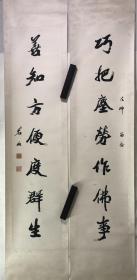 巧把塵勞作佛事
善知方便度群生